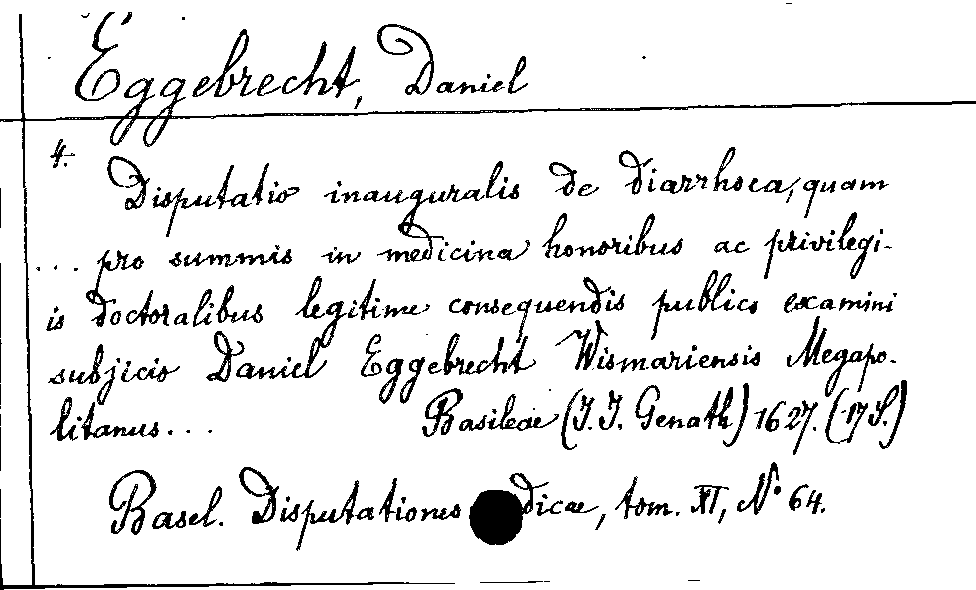 Eggebrecht, Daniel
4.
Disputatio inauguralis de diarrhoea, quam
... pro summis in medicina honoribus ac privilegi-
is doctoralibus legitime consequendis publico examini
subjicio Daniel Eggebrecht Wismariensis Megapo-
litanus... Basileae (J. J. Genath) 1627. (17 S.)
Basel. Disputationes dicae, tom. XI, No 64.